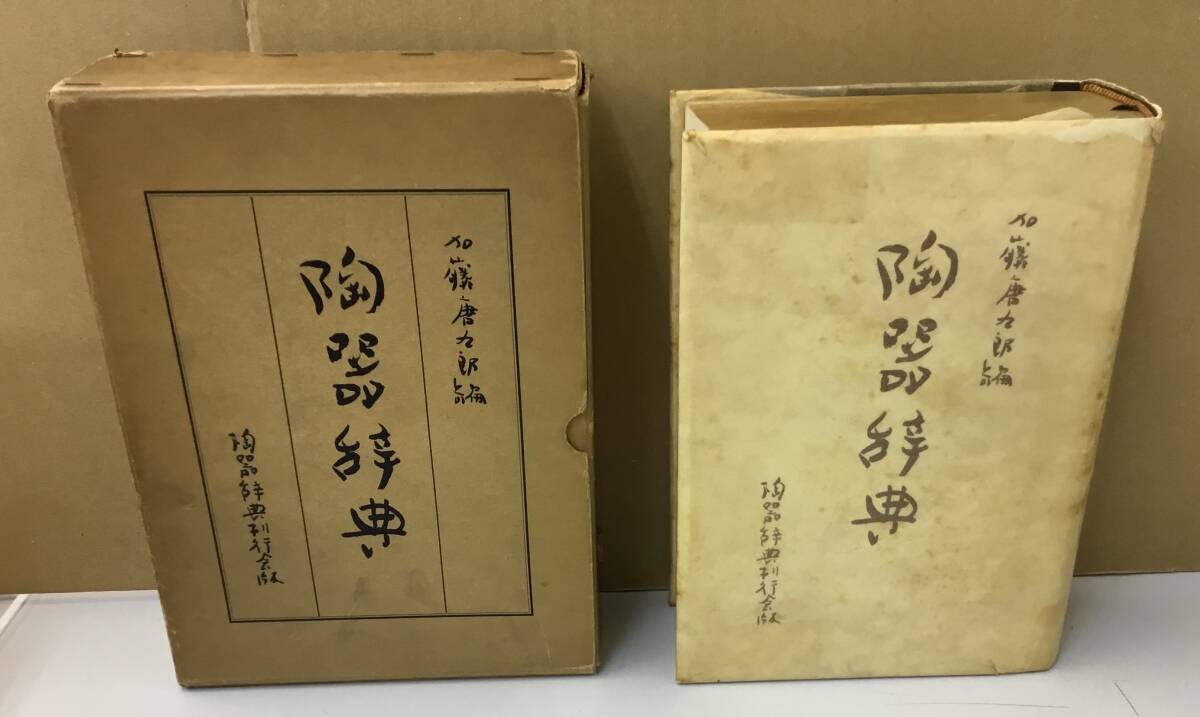 加藤唐九郎編
陶器辞典
陶器辞典刊行会版
加藤唐九郎編
陶器辞典
陶器辞典刊行会版